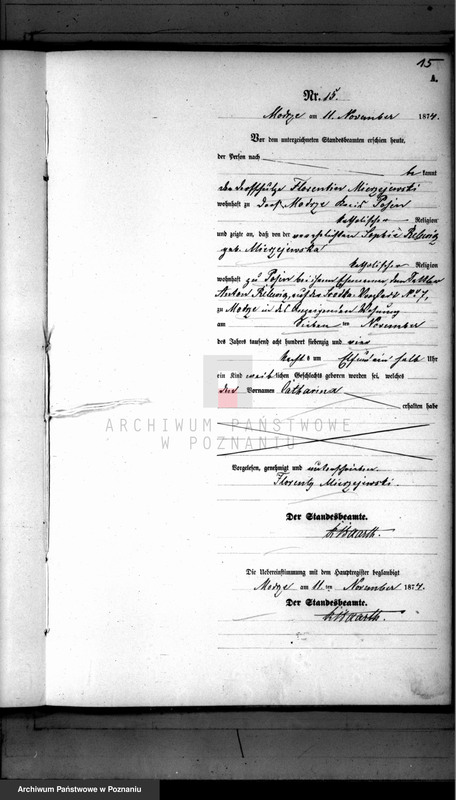 15
A.
Nr. 15.
Modrze am 11. November 1874.
Vor dem unterzeichneten Standesbeamten erschien heute,
der Person nach
be kannt
Florentin Mierzejewski
wohnhaft zu Dorf Modrze Kreis Posen
katholischer Religion
und zeigte an, daß von der verehelichten Sophie
geb. Mierzejewska
katholischer Religion
wohnhaft zu Posen bei ihrem Ehemanne, dem
Anton Vorstadt No 7,
zu Modrze in des Anzeigenden Wohnung
am Sieben ten November
des Jahres tausend acht hundert siebenzig und vier
Nachts um Elf und ein halb Uhr
ein Kind weib lichen Geschlechts geboren worden sei, welches
den Vornamen Catharina
erhalten habe
ARCHIWUM PAŃSTWOWE
W POZNANIU
Vorgelesen, genehmigt und unterschrieben
Florenty Mierzejewski
Der Standesbeamte.
Die Uebereinstimmung mit dem Hauptregister beglaubigt
Modrze am 11 ten November 1874.
Der Standesbeamte.
Archiwum Państwowe w Poznaniu